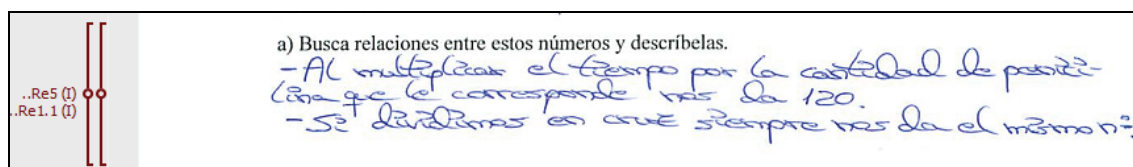 a) Busca relaciones entre estos números y descríbelas.
- Al multiplicar el tiempo por la cantidad de penici-
lina que le corresponde nos da 120.
- Si dividimos en cruz siempre nos da el mismo nº.
..Re5 (I)
..Re1.1 (I)